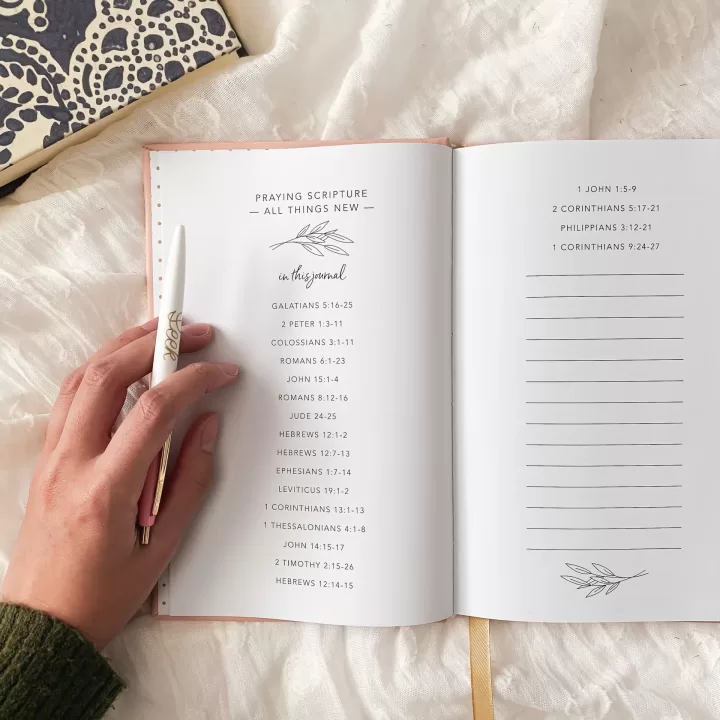 PRAYING SCRIPTURE
— ALL THINGS NEW —
in this journal
GALATIANS 5:16-25
2 PETER 1:3-11
COLOSSIANS 3:1-11
ROMANS 6:1-23
JOHN 15:1-4
ROMANS 8:12-16
JUDE 24-25
HEBREWS 12:1-2
HEBREWS 12:7-13
EPHESIANS 1:7-14
LEVITICUS 19:1-2
1 CORINTHIANS 13:1-13
1 THESSALONIANS 4:1-8
JOHN 14:15-17
2 TIMOTHY 2:15-26
HEBREWS 12:14-15
1 JOHN 1:5-9
2 CORINTHIANS 5:17-21
PHILIPPIANS 3:12-21
1 CORINTHIANS 9:24-27